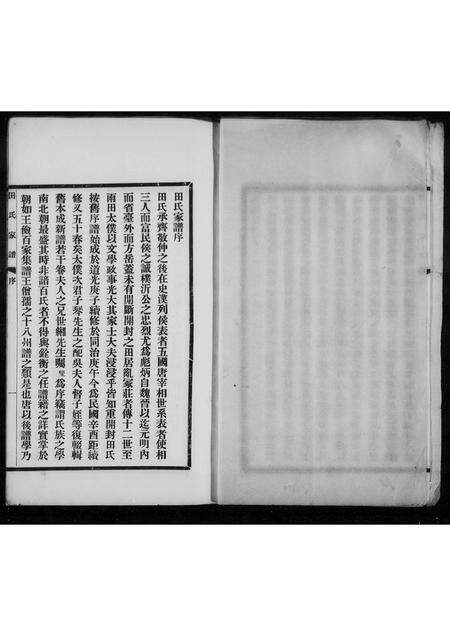 田氏家譜序
田氏承齊敬仲之後在史漢列侯表者五國唐宰相世系表者使相
三人而富民侯之誠樸沂公之忠烈尤為彪炳自魏晉以迄元明內
而省臺外而方岳蓋未有間斷開封之田居亂冢莊者傳十二世至
雨田太僕以文學政事光大其家士大夫浸浸乎皆知重開封田氏
按舊序譜始成於道光庚子續修於同治庚午今為民國辛酉距續
修又五十春矣太僕次君子琴先生之配吳夫人督子姪等復賡輯
舊本成新譜若干卷夫人之兄世緗先生囑 為序竊謂氏族之學
南北朝最盛其時非譜百氏者不得與銓衡之任譜籍之詳實掌於
朝如王儉百家集譜王僧孺之十八州譜之類是也唐以後譜學乃
田氏家譜 序 一